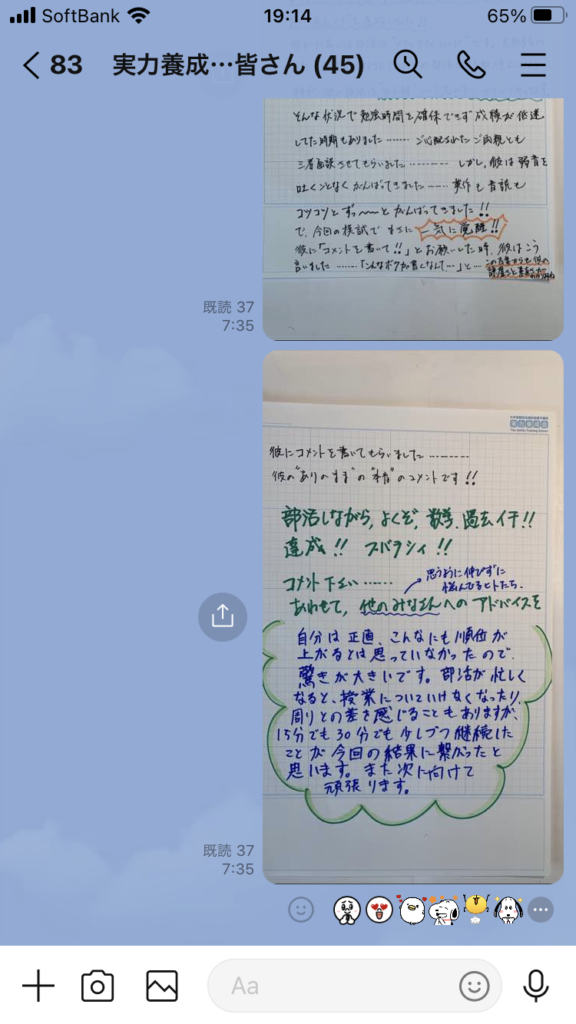 SoftBank 19:14 65%
83 実力養成…皆さん (45)
そんな状況で勉強時間を確保できず成績が低迷
してた時期もありました……… ご心配されたご両親とも
三者面談させてもらいました………… しかし、彼は弱音を
吐くことなくがんばってきました…… 英作も音読も
コツコツとずっ〜〜とがんばってきました!!
で、今回の模試でまさに 一気に覚醒!!
彼に「コメントを書いて!!」とお願いした時、彼はこう
言いました………「こんなボクが書くなんて…」と…
既読 37
7:35
実力養成会
彼にコメントを書いてもらいました…………
彼の"ありのまま"の"本音"のコメントです!!
部活しながら、よくぞ、数学、過去イチ!!
達成!! スバラシイ!!
思うように伸びずに
悩んでるヒトたち、
コメント下さい……
あわせて、他のみなさんへのアドバイスを
自分は正直、こんなにも順位が
上がるとは思っていなかったので、
驚きが大きいです。部活が忙しく
なると、授業についていけなくなったり
周りとの差を感じることもありますが、
15分でも30分でも少しづつ継続した
ことが今回の結果に繋がったと
思います。また次に向けて
頑張ります。
既読 37
7:35
Aa